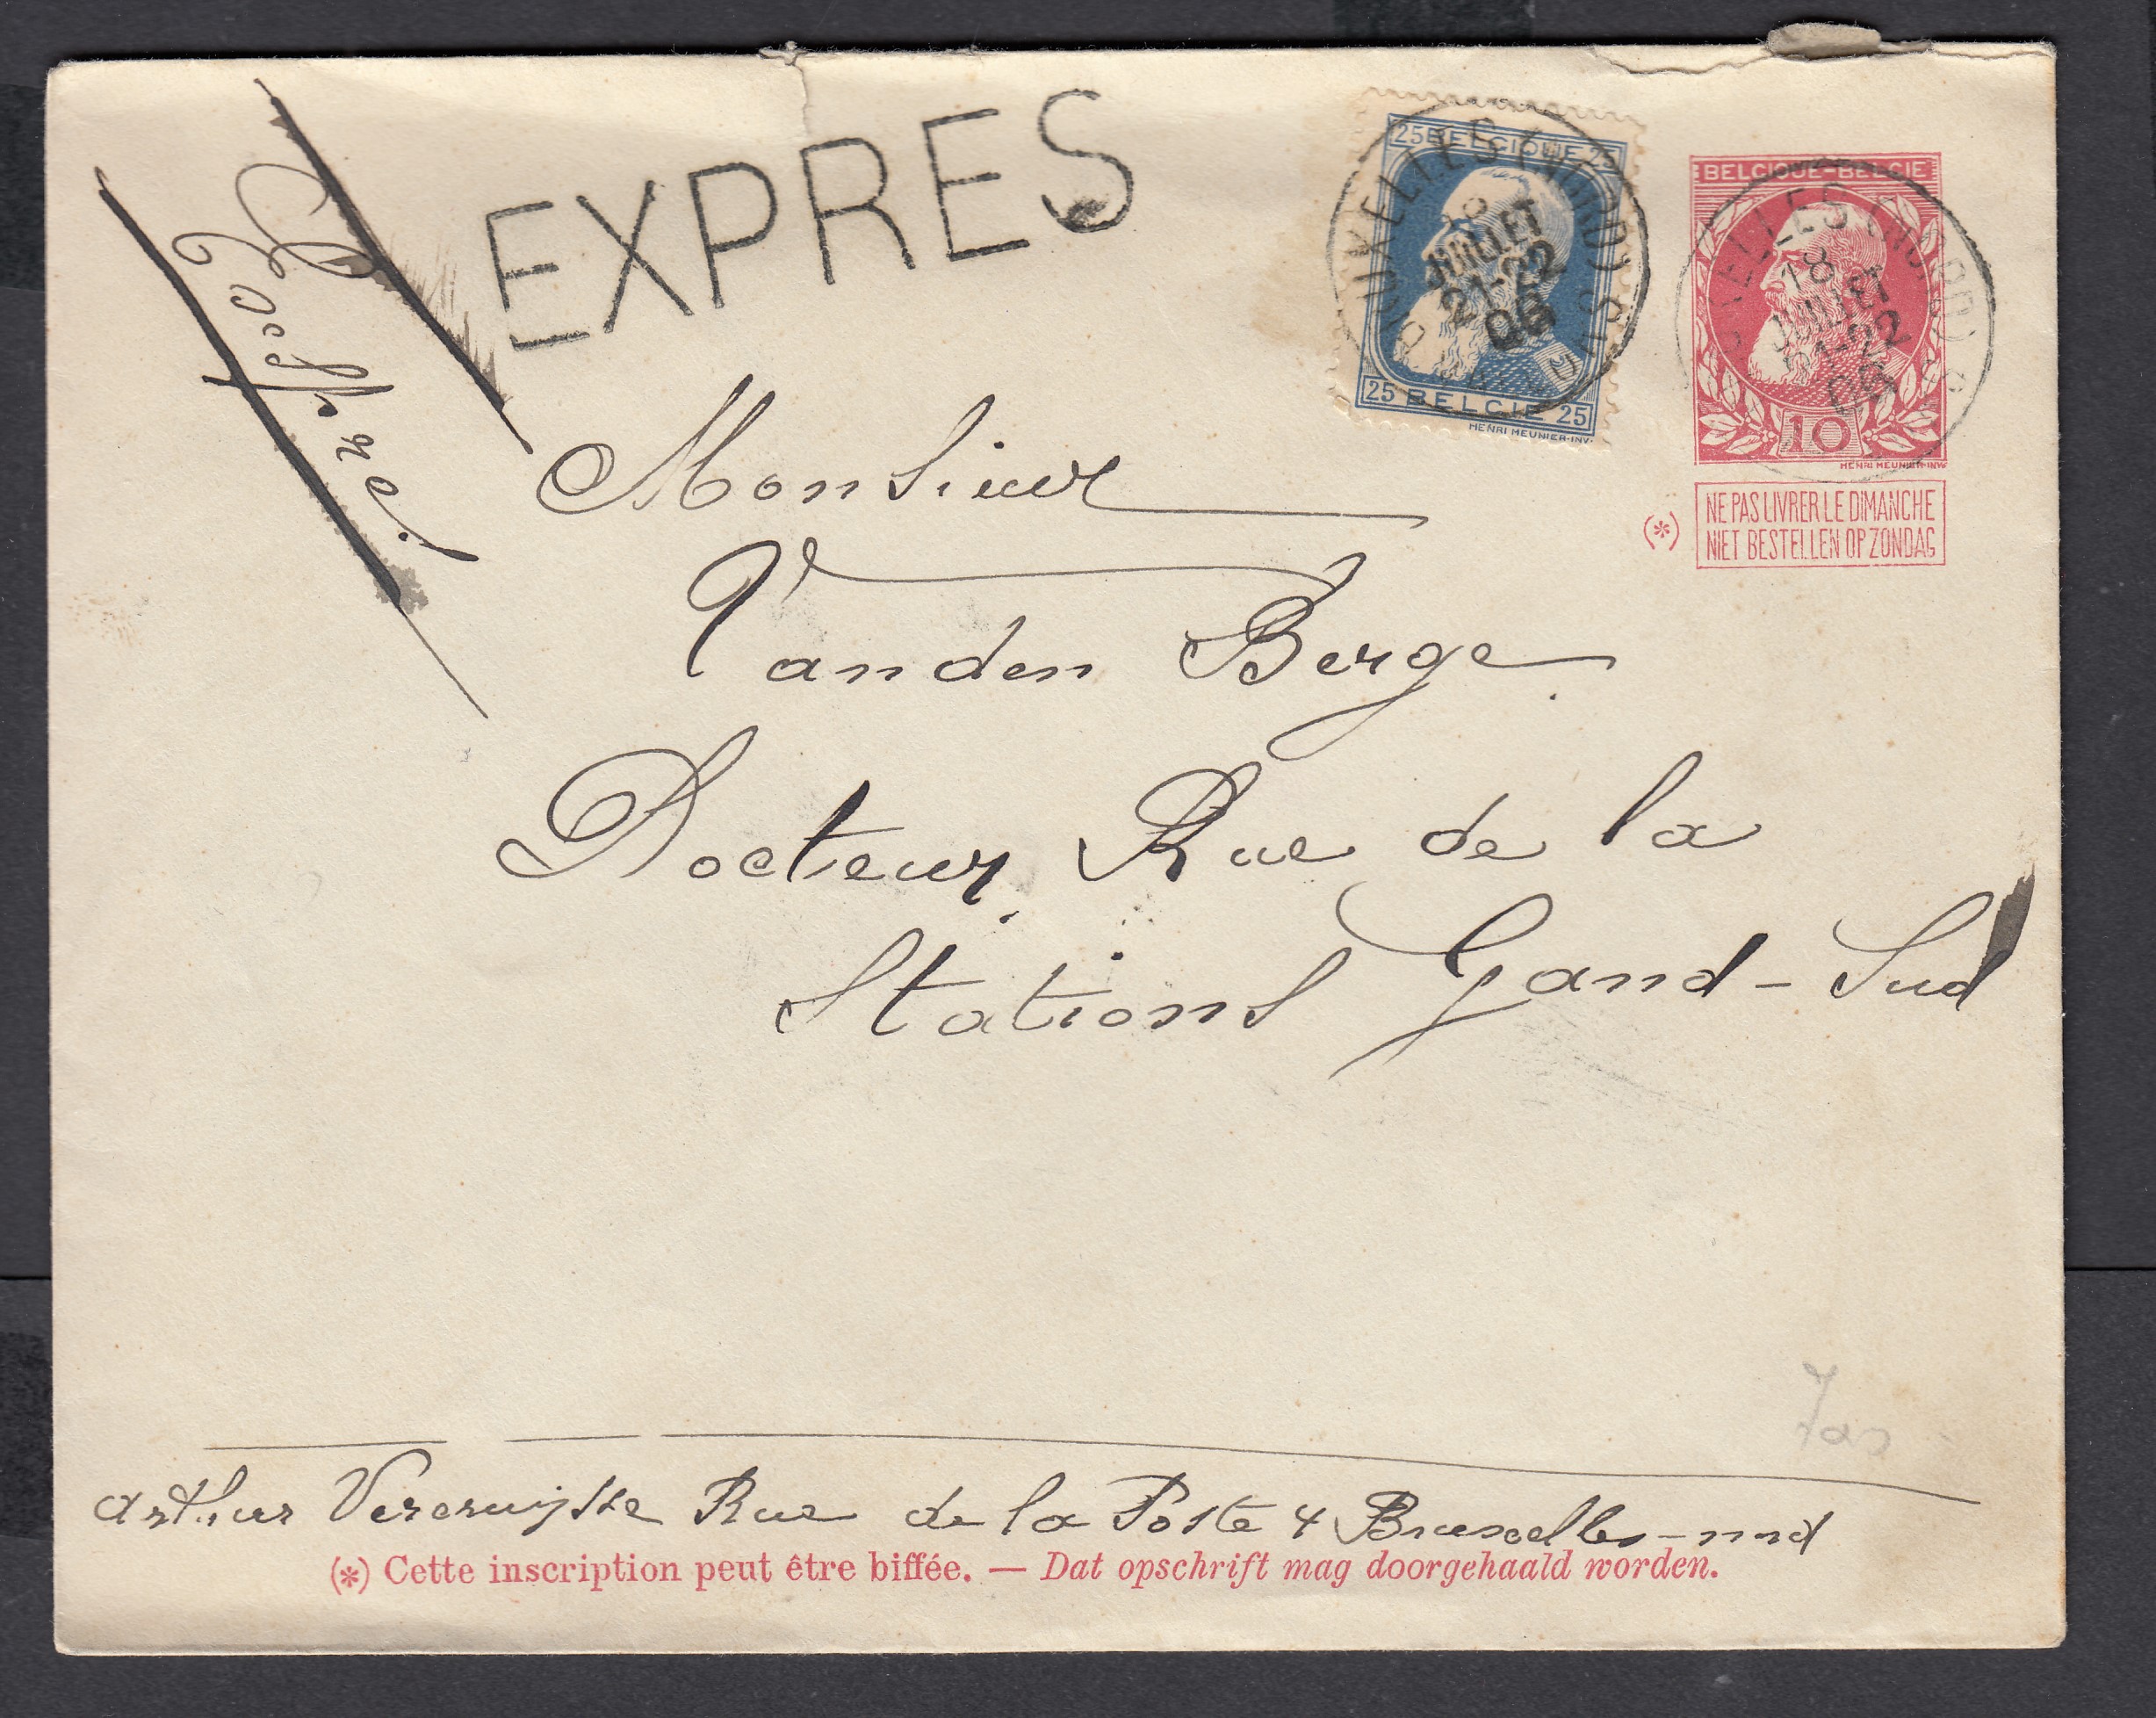 EXPRES
25 BELGIQUE 25
BRUXELLES (NORD)
18
JUILLET
21-22
06
25 BELGIË 25
HENRI MEUNIER·INV·
BELGIQUE-BELGIË
18
JUILLET
21-22
06
10
HENRI MEUNIER·INV·
(*)
NE PAS LIVRER LE DIMANCHE
NIET BESTELLEN OP ZONDAG
Monsieur
Vanden Berge
Docteur Rue de la
Stations Gand-Sud
Arthur Vercruijsse Rue de la Poste 4 Bruxelles-nrd
(*) Cette inscription peut être biffée. — Dat opschrift mag doorgehaald worden.